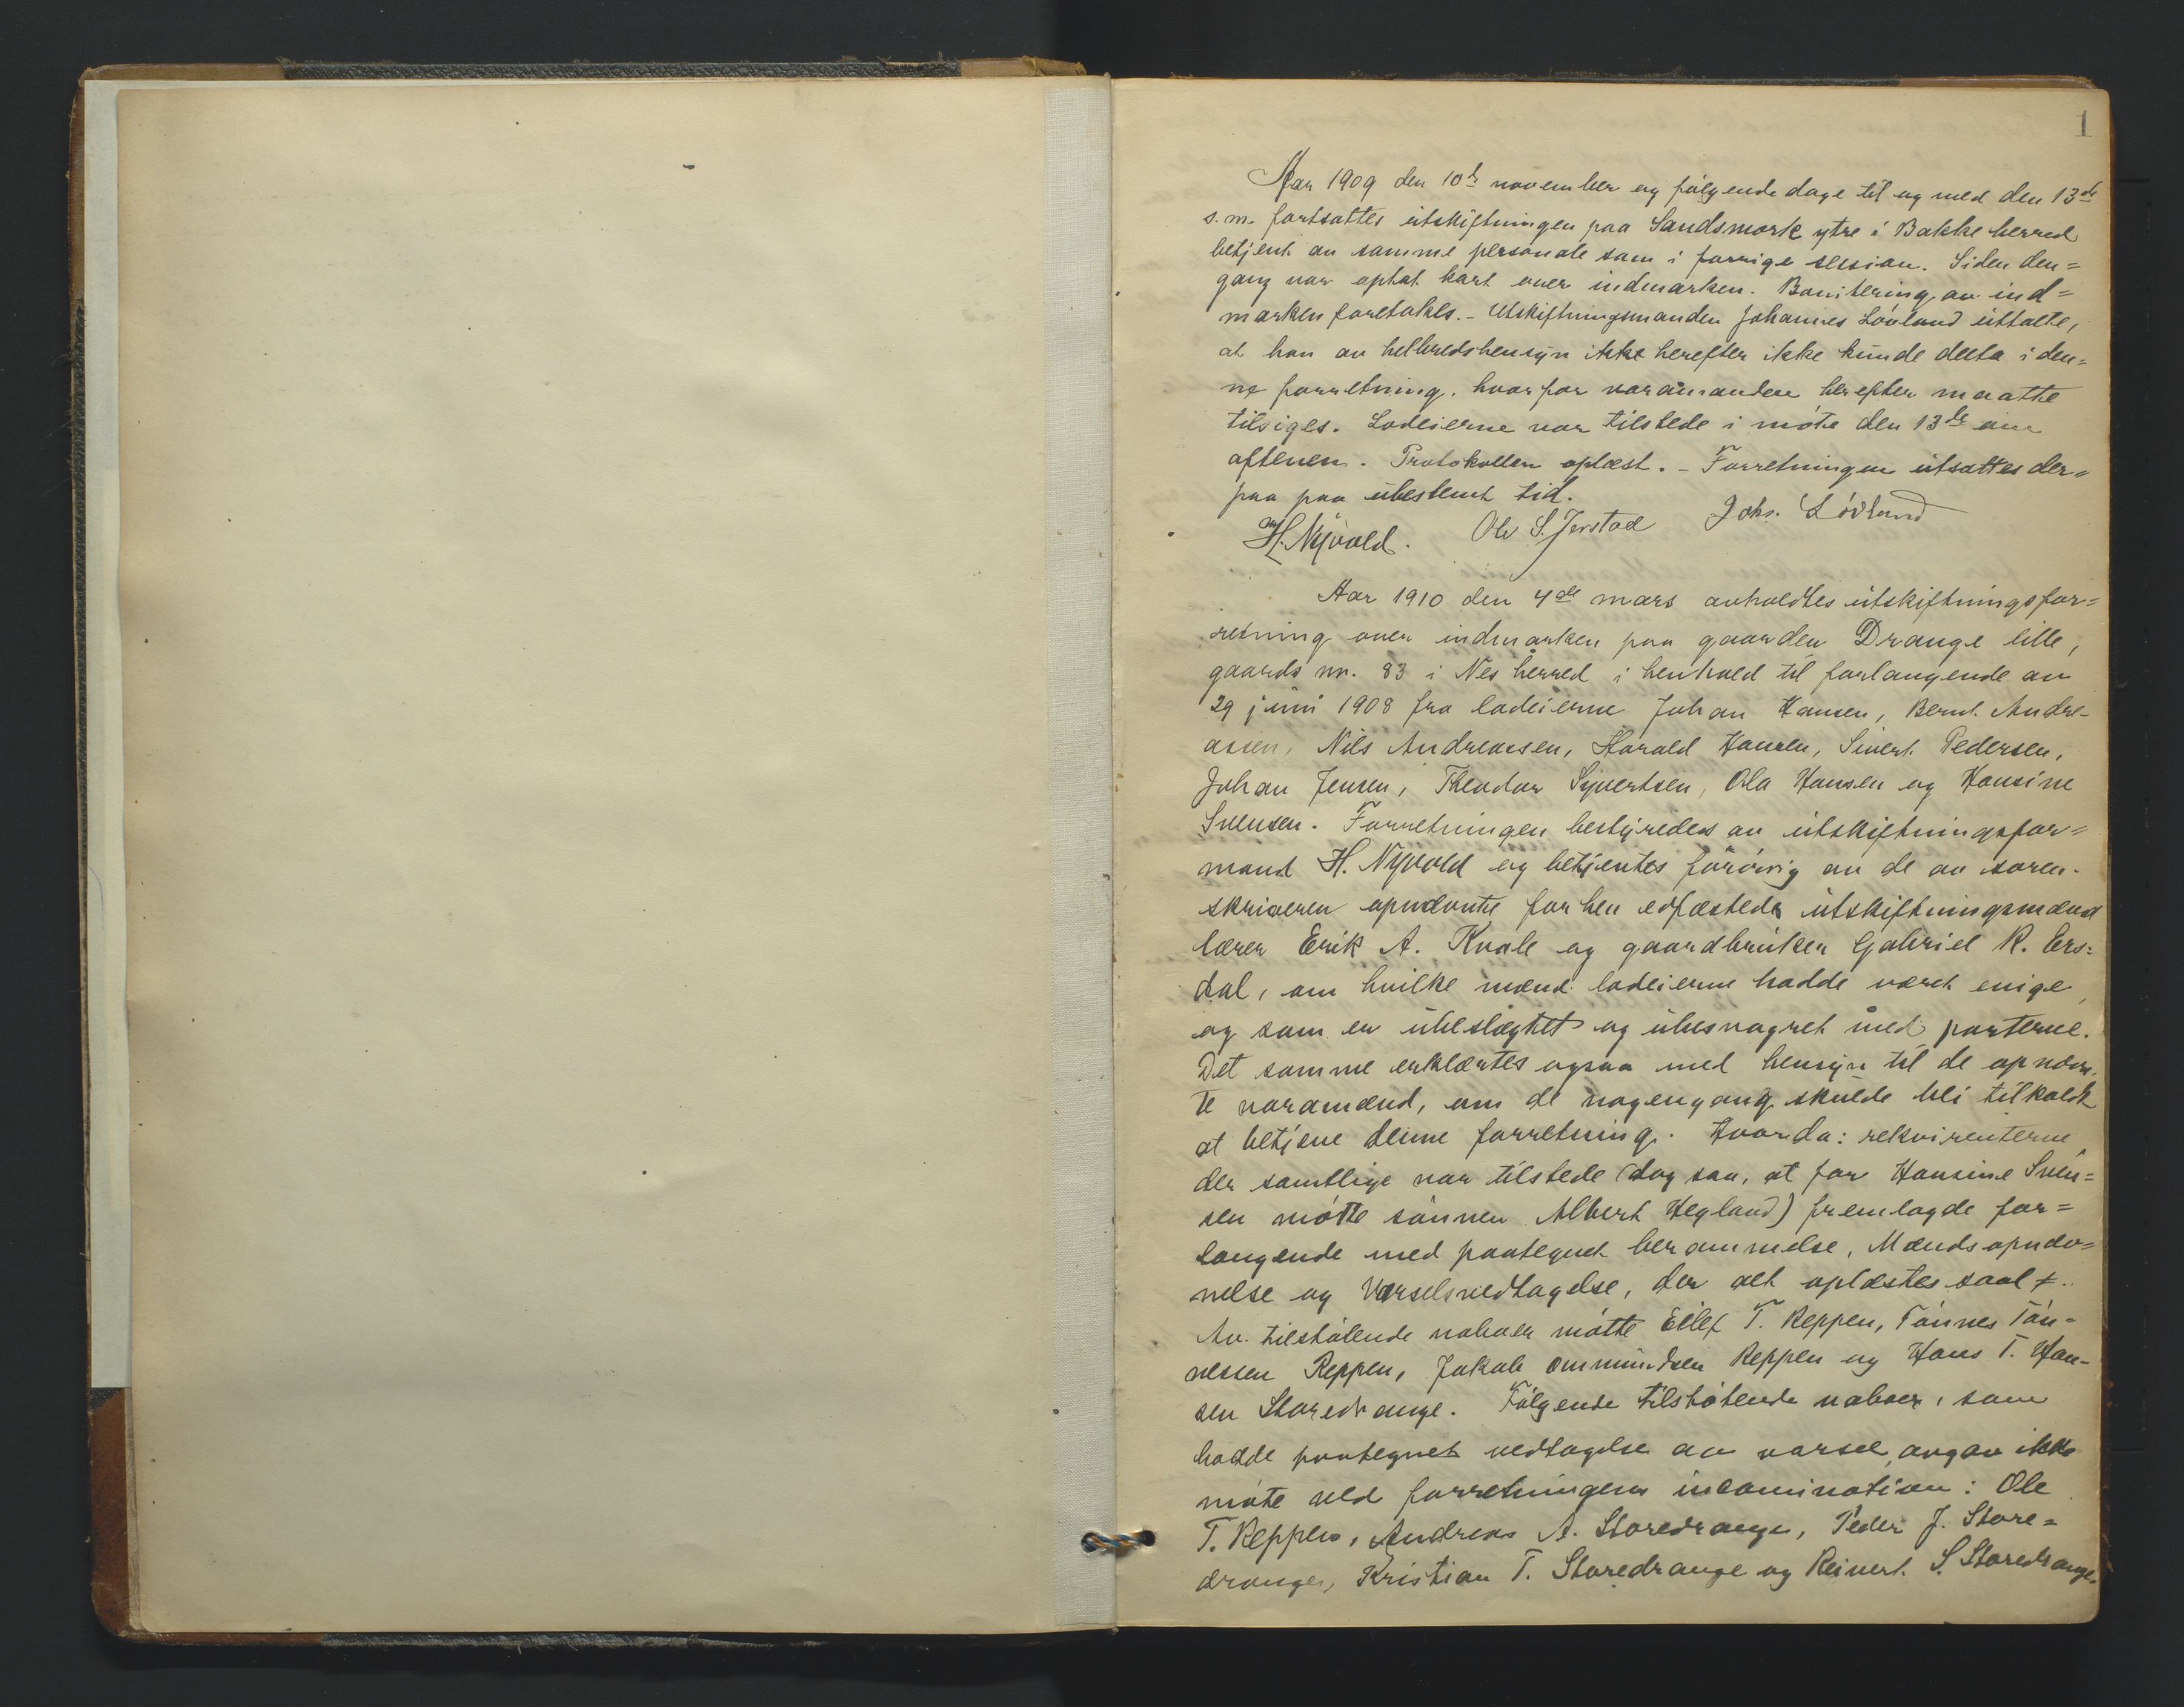 1
Aar 1909 den 10de november og følgende dage til og med den 13de
s.m. fortsattes utskiftningen paa Sandsmork ytre i Bakke herred
betjent av samme personale som i forrige session. Siden den=
gang var optat kart over indmarken. Bonitering av ind=
marken foretokes. - Utskiftningsmanden Johannes Lövland uttalte,
at han av helbredshensyn ikke herefter ikke kunde delta i den=
ne forretning, hvorfor varamanden herefter maatte
tilsiges. Lodeierne var tilstede i møte den 13de om
aftenen. Protokollen oplæst. - Forretningen utsattes der=
paa paa ubestemt tid.
H. Nyvold. Ole S. Jerstad Johs. Lövland
Aar 1910 den 4de mars avholdtes utskiftningsfor=
retning over indmarken paa gaarden Drange lille,
gaards nr. 83 i Nes herred i henhold til forlangende av
29 juni 1908 fra lodeierne Johan Hansen, Bernt Andre-
assen, Nils Andreassen, Harald Hansen, Sivert Pedersen,
Johan Jensen, Theodor Syvertsen, Ola Hansen og Hansine
Svensen. Forretningen bestyredes av utskiftningsfor=
mand H. Nyvold og betjentes forövrig av de av soren-
skriveren opnævnte forhen edfæstede utskiftningsmænd
lærer Erik A. Kvale og gaardbruker Gabriel R. Ers=
dal, om hvilke mænd lodeierne hadde været enige,
og som er ubeslægtet og ubesvogret med parterne.
Det samme erklærtes ogsaa med hensyn til de opnævn-
te varamænd, om de nogengang skulde bli tilkaldt
at betjene denne forretning. Hvorda: rekvirenterne
der samtlige var tilstede (dog saa, at for Hansine Sven=
sen møtte sønnen Albert Hegland) fremlagde for=
langende med paategnet berammelse, Mændsopnæv=
nelse og Varselsvedtagelse, der alt oplæstes saal
Av tilstøtende naboer møtte Eilef T. Reppen, Tønnes Tøn-
nessen Reppen, Jakob Ommundsen Reppen og Hans T. Han-
sen Storedrange. Følgende tilstøtende naboer, som
hadde paategnet vedtagelse av varsel, avgav ikke
møte ved forretningens incamination: Ole
T. Reppen, Andreas A. Storedrange, Peder J. Store=
drange, Kristian T. Storedrange og Reinert S. Storedrange.